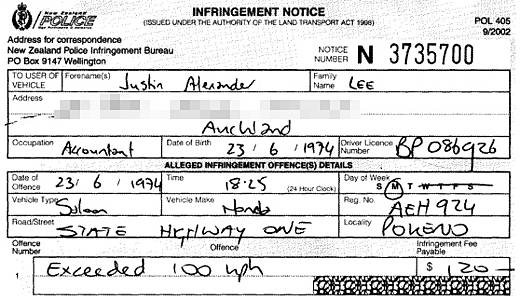 New Zealand
POLICE
INFRINGEMENT NOTICE
(ISSUED UNDER THE AUTHORITY OF THE LAND TRANSPORT ACT 1998)
POL 405
9/2002
Address for correspondence
New Zealand Police Infringement Bureau
PO Box 9147 Wellington
NOTICE NUMBER N 3735700
TO USER OF VEHICLE Forename(s) Justin Alexander Family Name LEE
Address
Auckland
Occupation Accountant Date of Birth 23 / 6 / 1974 Driver Licence Number BP086926
ALLEGED INFRINGEMENT OFFENCE(S) DETAILS
Date of Offence 23 / 6 / 1974 Time 18.25 (24 Hour Clock) Day of Week S M T W T F S
Vehicle Type Saloon Vehicle Make Honda Reg. No. AEH924
Road/Street STATE HIGHWAY ONE Locality POKENO
Offence Number Offence Infringement Fee Payable
1 Exceeded 100 kph $ 120 -